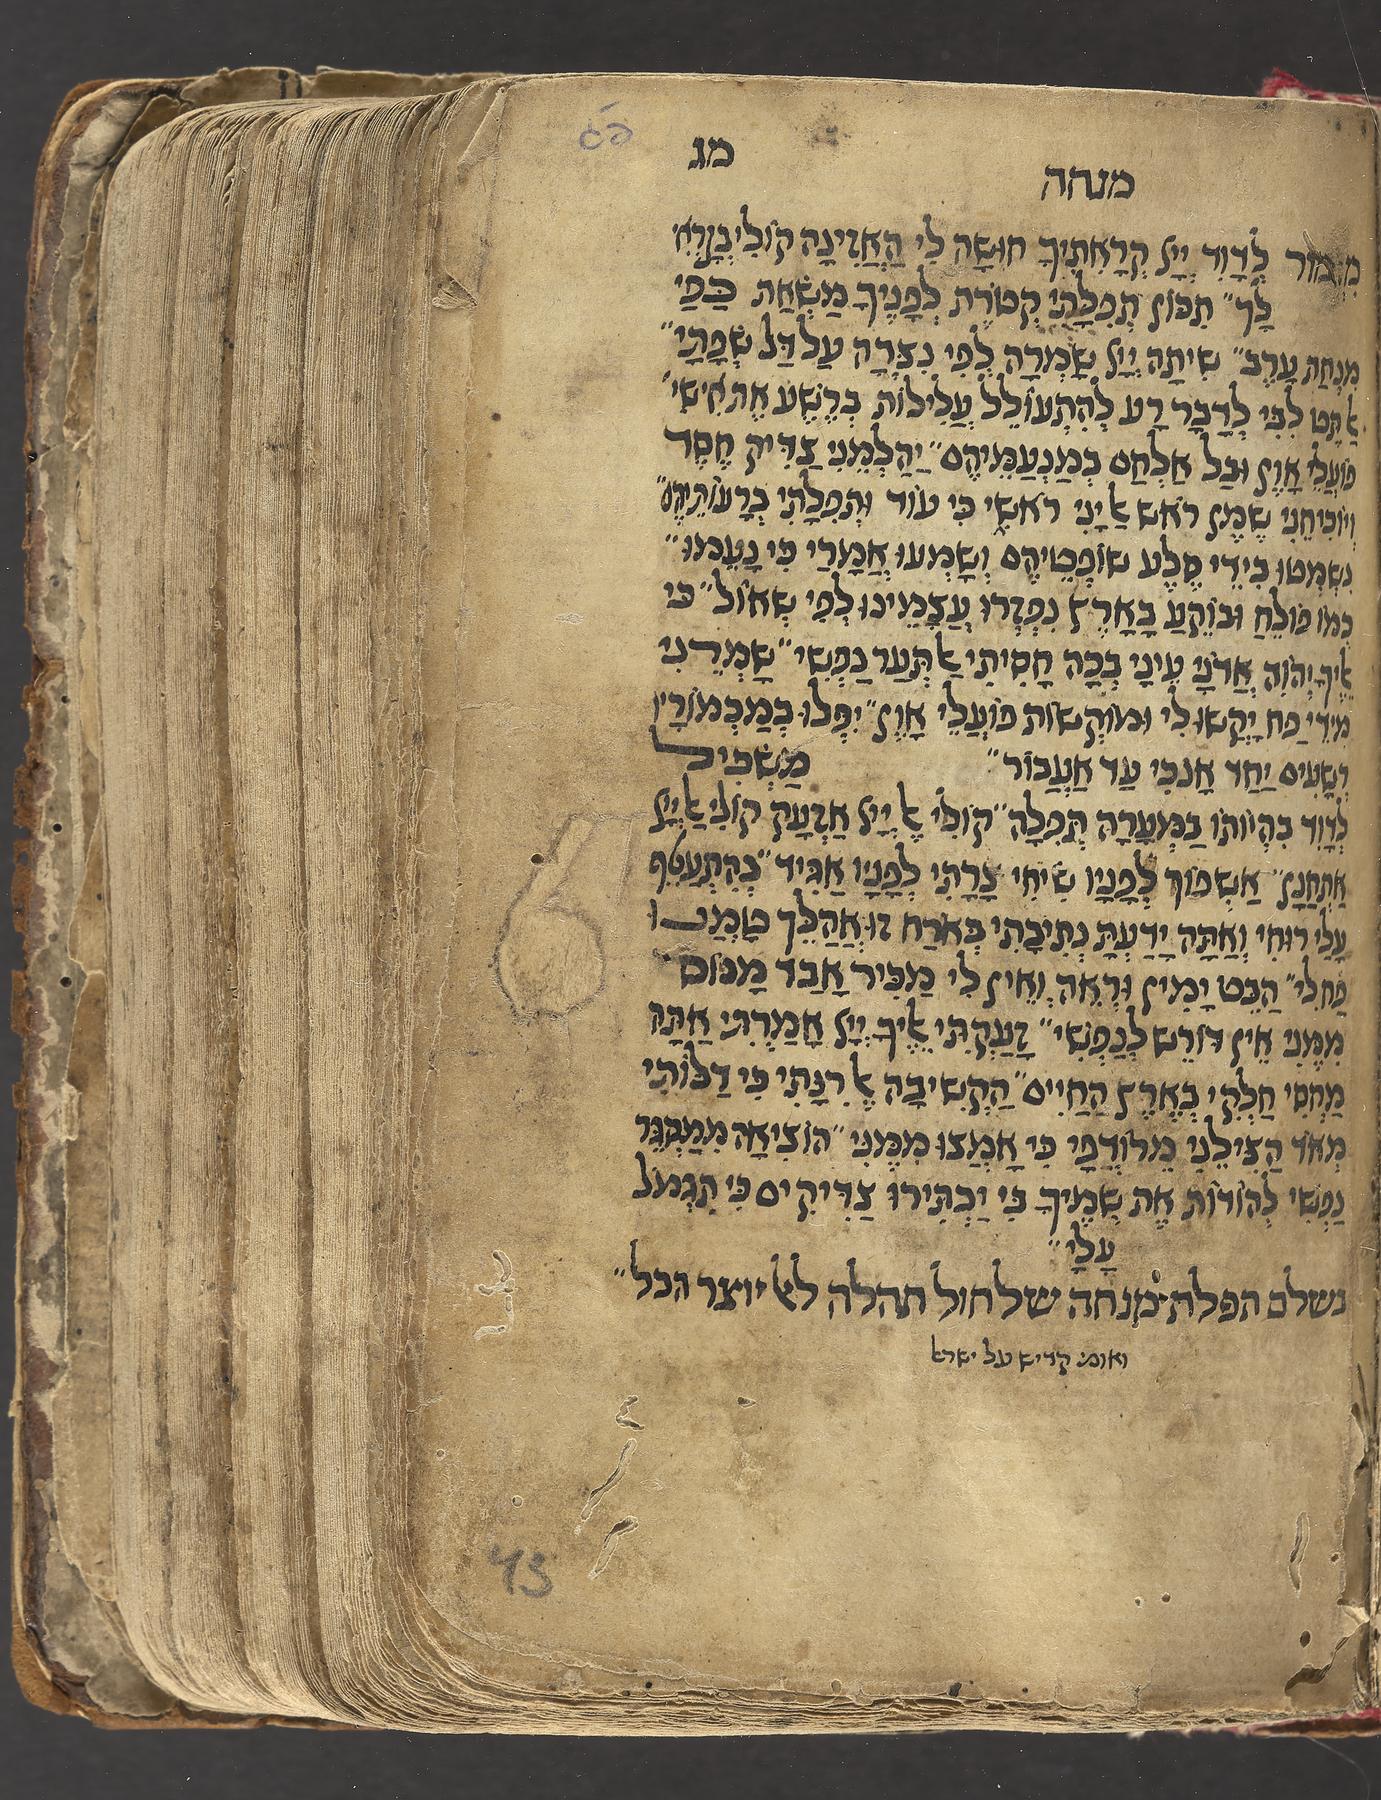 מג
מנחה
מִזְמוֹר לְדָוִד יְיָ קְרָאתִיךָ חוּשָׁה לִי הַאֲזִינָה קוֹלִי בְּקָרְאִי
לָךְ״ תִּכּוֹן תְּפִלָּתִי קְטֹרֶת לְפָנֶיךָ מַשְׂאַת כַּפַּי
מִנְחַת עָרֶב״ שִׁיתָה יְיָ שָׁמְרָה לְפִי נִצְּרָה עַל דַּל שְׂפָתָי״
אַל תַּט לִבִּי לְדָבָר רָע לְהִתְעוֹלֵל עֲלִילוֹת בְּרֶשַׁע אֶת אִישִׁי׳
פּוֹעֲלֵי אָוֶן וּבַל אֶלְחַם בְּמַנְעַמֵּיהֶם״ יֶהֶלְמֵנִי צַדִּיק חֶסֶד
וְיוֹכִיחֵנִי שֶׁמֶן רֹאשׁ אַל יָנִי רֹאשִׁי כִּי עוֹד וּתְפִלָּתִי בְּרָעוֹתֵיהֶם״
נִשְׁמְטוּ בִידֵי סֶלַע שׁוֹפְטֵיהֶם וְשָׁמְעוּ אֲמָרַי כִּי נָעֵמוּ״
כְּמוֹ פוֹלֵחַ וּבוֹקֵעַ בָּאָרֶץ נִפְזְרוּ עֲצָמֵינוּ לְפִי שְׁאוֹל״ כִּי
אֵלֶיךָ יְהוָה אֲדֹנָי עֵינָי בְּכָה חָסִיתִי אַל תְּעַר נַפְשִׁי״ שָׁמְרֵנִי
מִידֵי פַח יָקְשׁוּ לִי וּמוֹקְשׁוֹת פּוֹעֲלֵי אָוֶן״ יִפְּלוּ בְמַכְמוֹרָיו
רְשָׁעִים יַחַד אָנֹכִי עַד אֶעֱבוֹר״ מַשְׂכִּיל
לְדָוִד בִּהְיוֹתוֹ בַמְּעָרָה תְּפִלָּה״ קוֹלִי אֶל יְיָ אֶזְעָק קוֹלִי אֶל יְיָ
אֶתְחַנָּן״ אֶשְׁפּוֹךְ לְפָנָיו שִׂיחִי צָרָתִי לְפָנָיו אַגִּיד״ בְּהִתְעַטֵּף
עָלַי רוּחִי וְאַתָּה יָדַעְתָּ נְתִיבָתִי בְּאֹרַח זוּ אֲהַלֵּךְ טָמְנוּ
פַח לִי״ הַבֵּט יָמִין וּרְאֵה וְאֵין לִי מַכִּיר אָבַד מָנוֹס
מִמֶּנִּי אֵין דּוֹרֵשׁ לְנַפְשִׁי״ זָעַקְתִּי אֵלֶיךָ יְיָ אָמַרְתִּי אַתָּה
מַחְסִי חֶלְקִי בְּאֶרֶץ הַחַיִּים״ הַקְשִׁיבָה אֶל רִנָּתִי כִּי דַלּוֹתִי
מְאֹד הַצִּילֵנִי מֵרוֹדְפַי כִּי אָמְצוּ מִמֶּנִּי״ הוֹצִיאָה מִמַּסְגֵּר
נַפְשִׁי לְהוֹדוֹת אֶת שְׁמֶךָ בִּי יַכְתִּירוּ צַדִּיקִים כִּי תִגְמֹל
עָלָי״
נשלם תפלת מנחה של חול תהלה לאל יוצר הכל״
ואומ׳ קדיש על ישראל
43